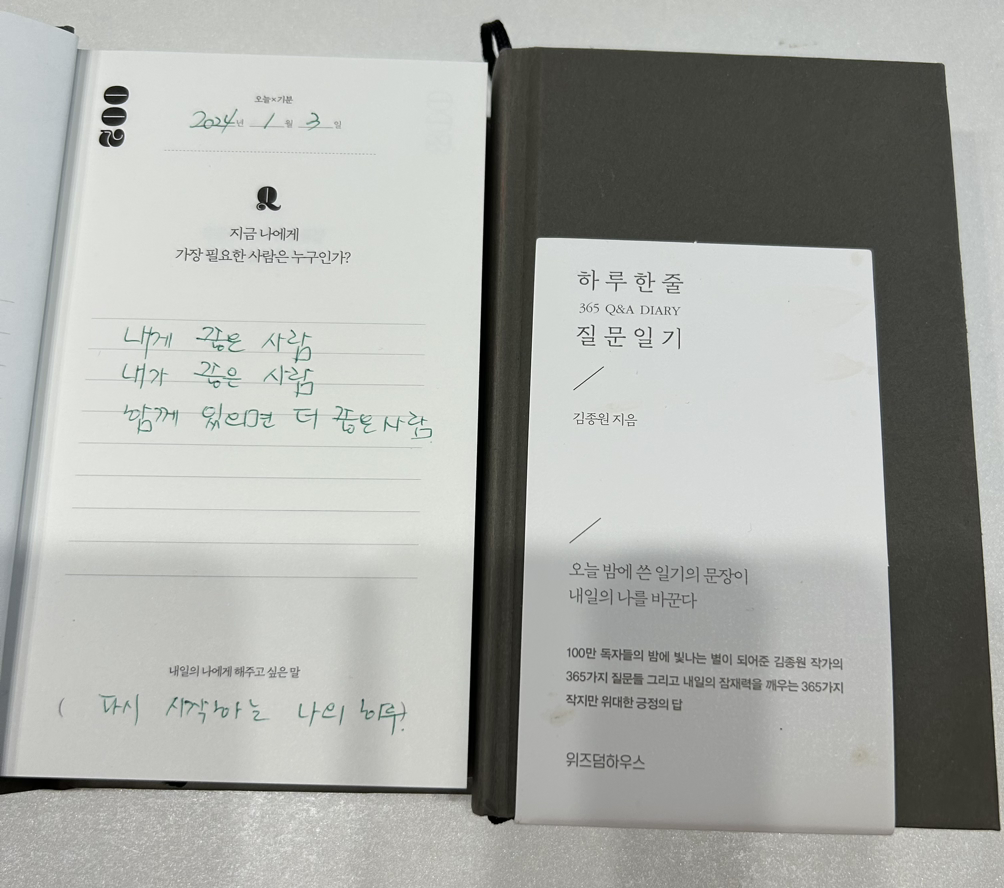 002
오늘×기분
2024년 1월 3일
Q
지금 나에게
가장 필요한 사람은 누구인가?
내게 좋은 사람
내가 좋은 사람
함께 있으면 더 좋은 사람
내일의 나에게 해주고 싶은 말
( 다시 시작하는 나의 하루?
하루 한 줄
365 Q&A DIARY
질문일기
김종원 지음
오늘 밤에 쓴 일기의 문장이
내일의 나를 바꾼다
100만 독자들의 밤에 빛나는 별이 되어준 김종원 작가의
365가지 질문들 그리고 내일의 잠재력을 깨우는 365가지
작지만 위대한 긍정의 답
위즈덤하우스